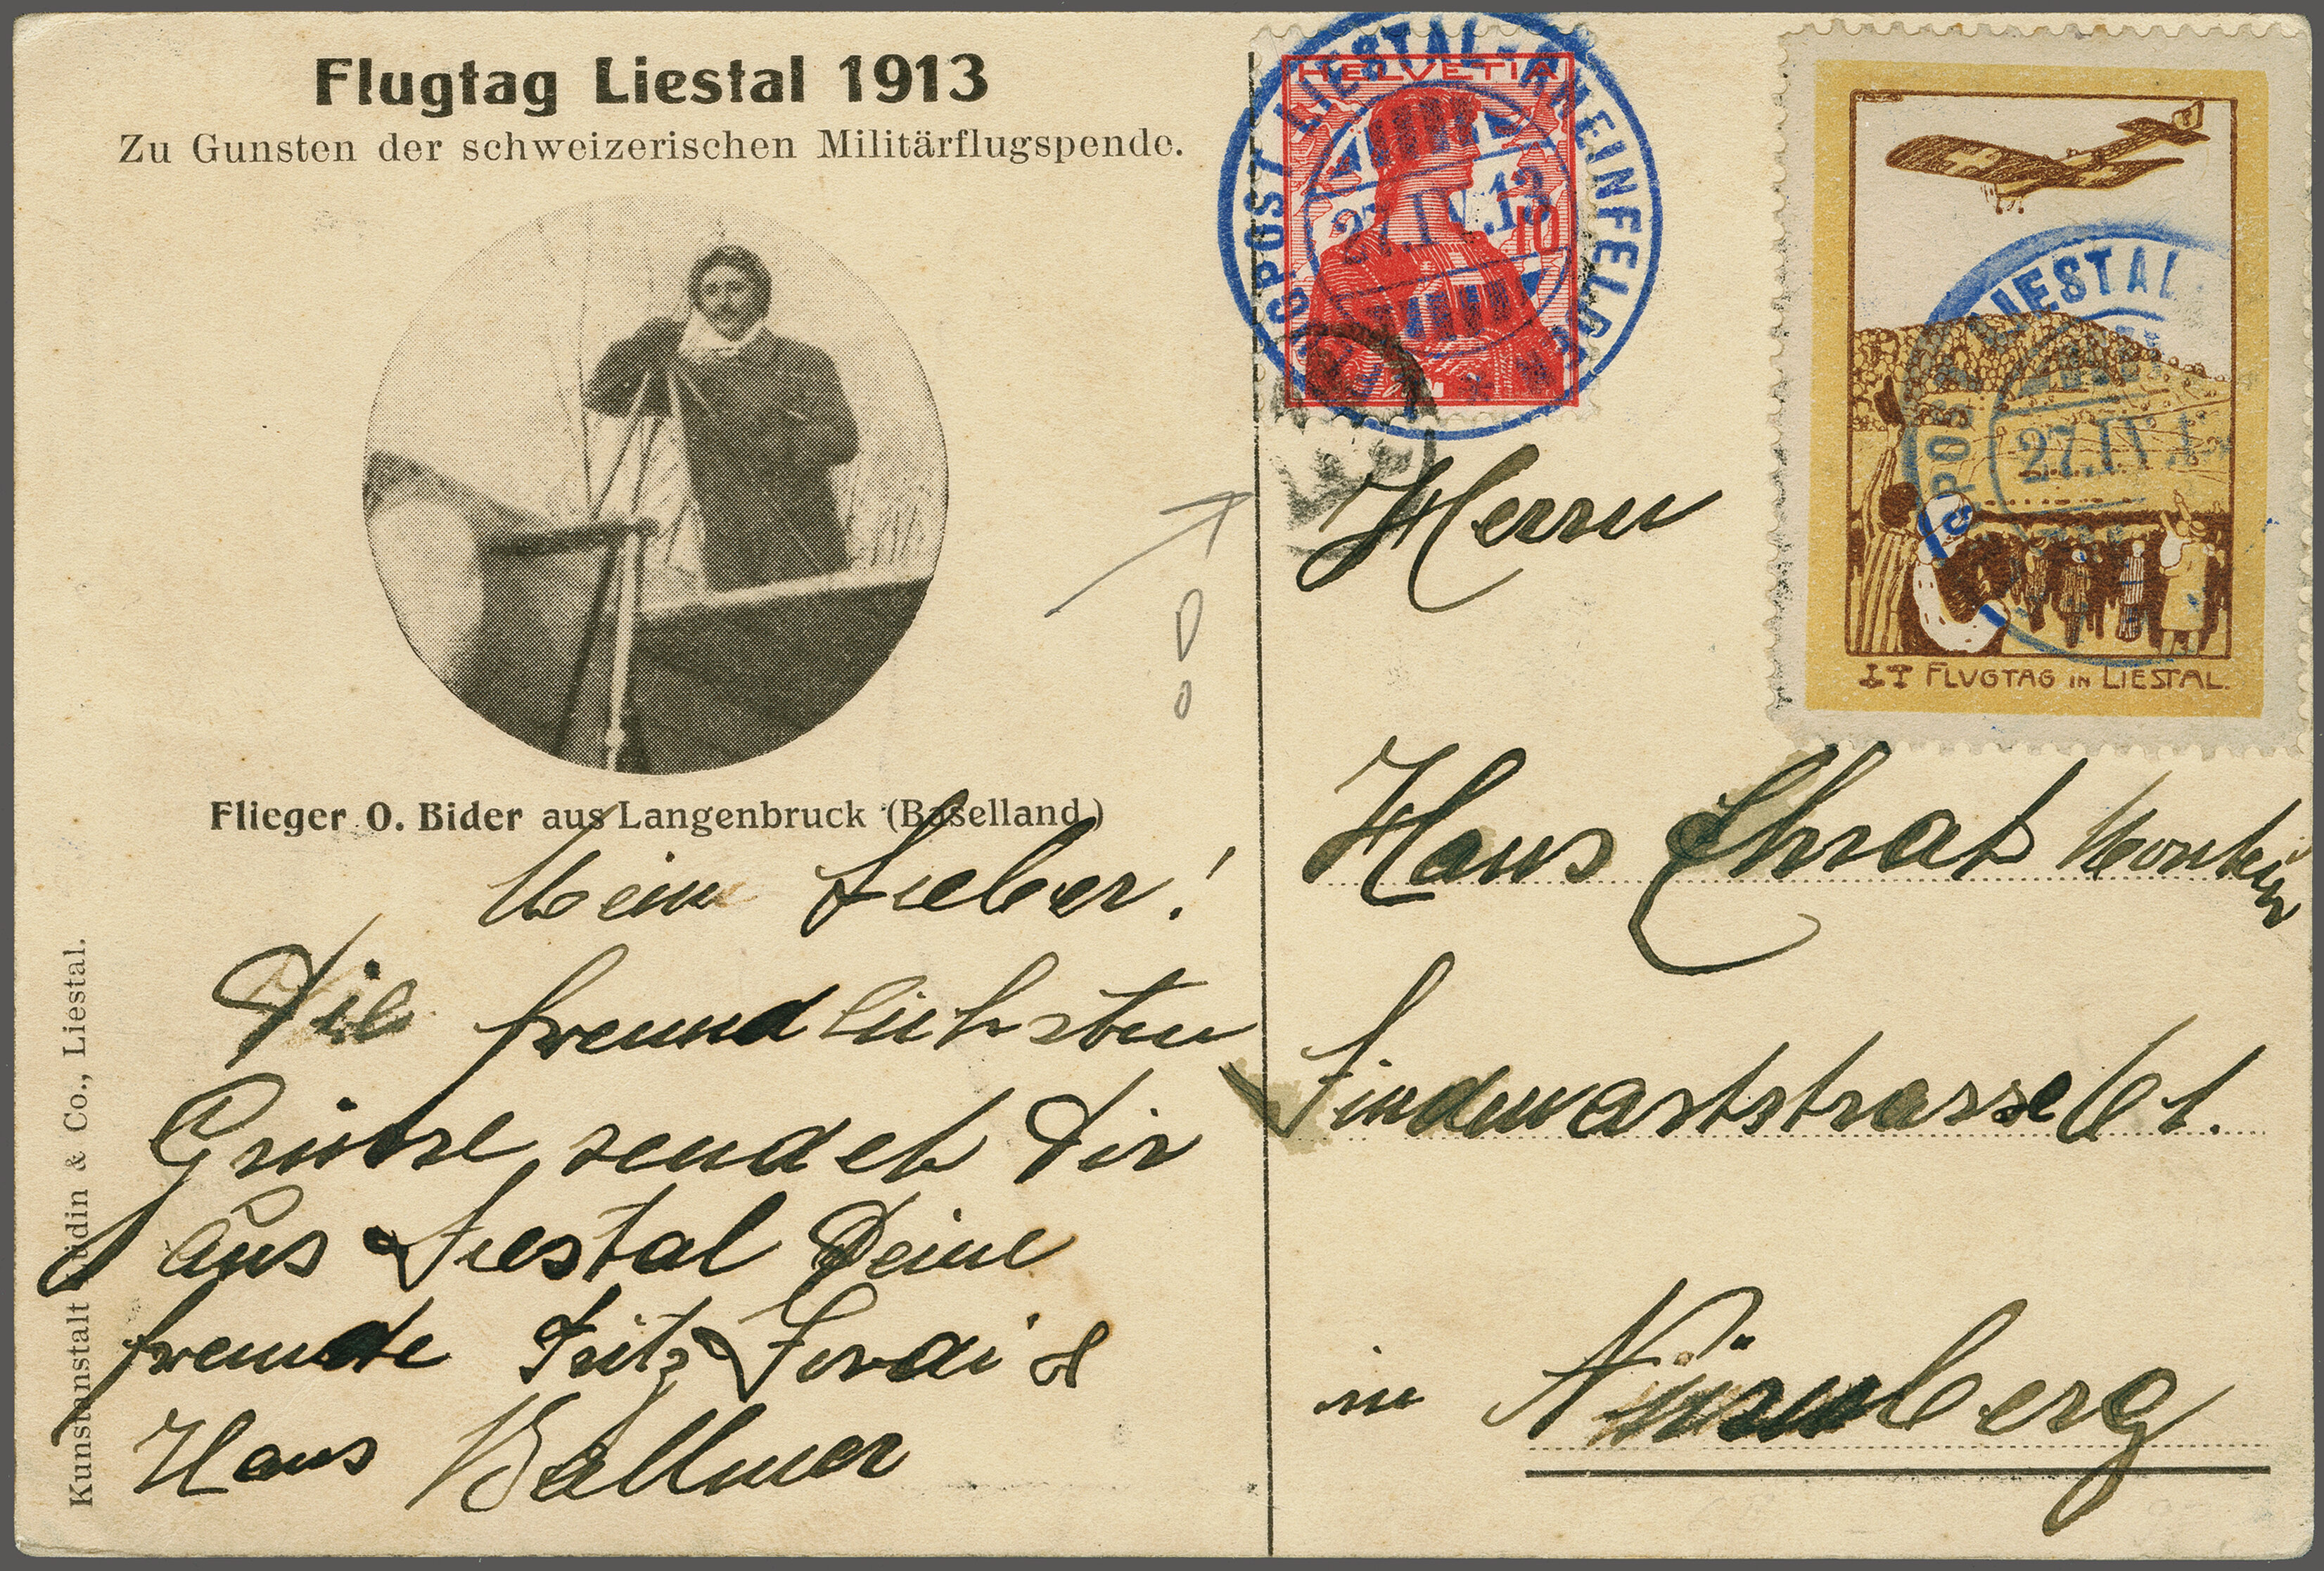 Flugtag Liestal 1913
Zu Gunsten der schweizerischen Militärflugspende.
Flieger O. Bider aus Langenbruck (Baselland.)
Mein Lieber!
Die freundlichsten
Grüsse sendet Dir
aus Liestal Deine
freunde Fritz &
Hans Ballmer
Kunstanstalt Lüdin & Co., Liestal.
HELVETIA
10
FLUGPOST LIESTAL-RHEINFELDEN
27.IV.13
LIESTAL
27.IV.1
FLVGTAG IN LIESTAL.
Herrn
Hans Ehrat
Lindenaststrasse 61.
in Nürnberg